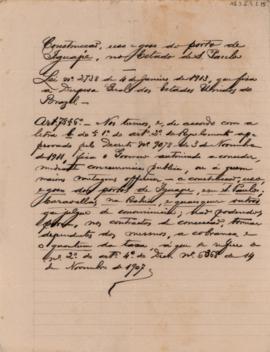 Construcção, uso e goso do porto de
Iguape, no Estado de S. Paulo
Lei nº 2738 de 4 de janeiro de 1913, que fixa
a Despesa Geral dos Estados Unidos do
Brazil.
Nos termos, e de accordo com a
letra do § 1º do artº 2º do Regulamento ap-
provado pelo Decreto nº 9078 de 3 de Novembro
de 1911, fica o Governo autorisado a conceder,
mediante concurrencia publica, ou a quem
mais vantagens offerecer, a construcção, uso
e goso dos portos de Iguape, em S. Paulo,
Caravellas, na Bahia, e quaesquer outros
que julgue de conveniencia; não podendo,
porem, nos contractos de concessão, tornar
dependente dos mesmos, a cobrança e
o quantum da taxa a que se refere o
nº 2º do artº 4º do Dec. nº 6368 de 14
de Novembro de 1907.